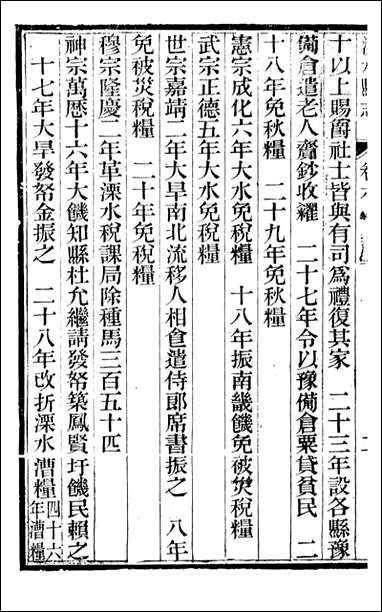 十以上賜爵社士皆與有司為禮復其家　二十三年設各縣豫
備倉遣老人齎鈔收糴　二十七年令以豫備倉粟貸貧民　二
十八年免秋糧　二十九年免秋糧
憲宗成化六年大水免稅糧　十八年振南畿饑免被災稅糧
武宗正德五年大水免稅糧
世宗嘉靖二年大旱南北流移人相食遣侍郎席書振之　八年
免被災稅糧　二十年免稅糧
穆宗隆慶二年革溧水稅課局除種馬三百五十匹
神宗萬曆十六年大饑知縣杜允繼請發帑築鳳賢圩饑民賴之
十七年大旱發帑金振之　二十八年改折溧水漕糧四十六年漕糧